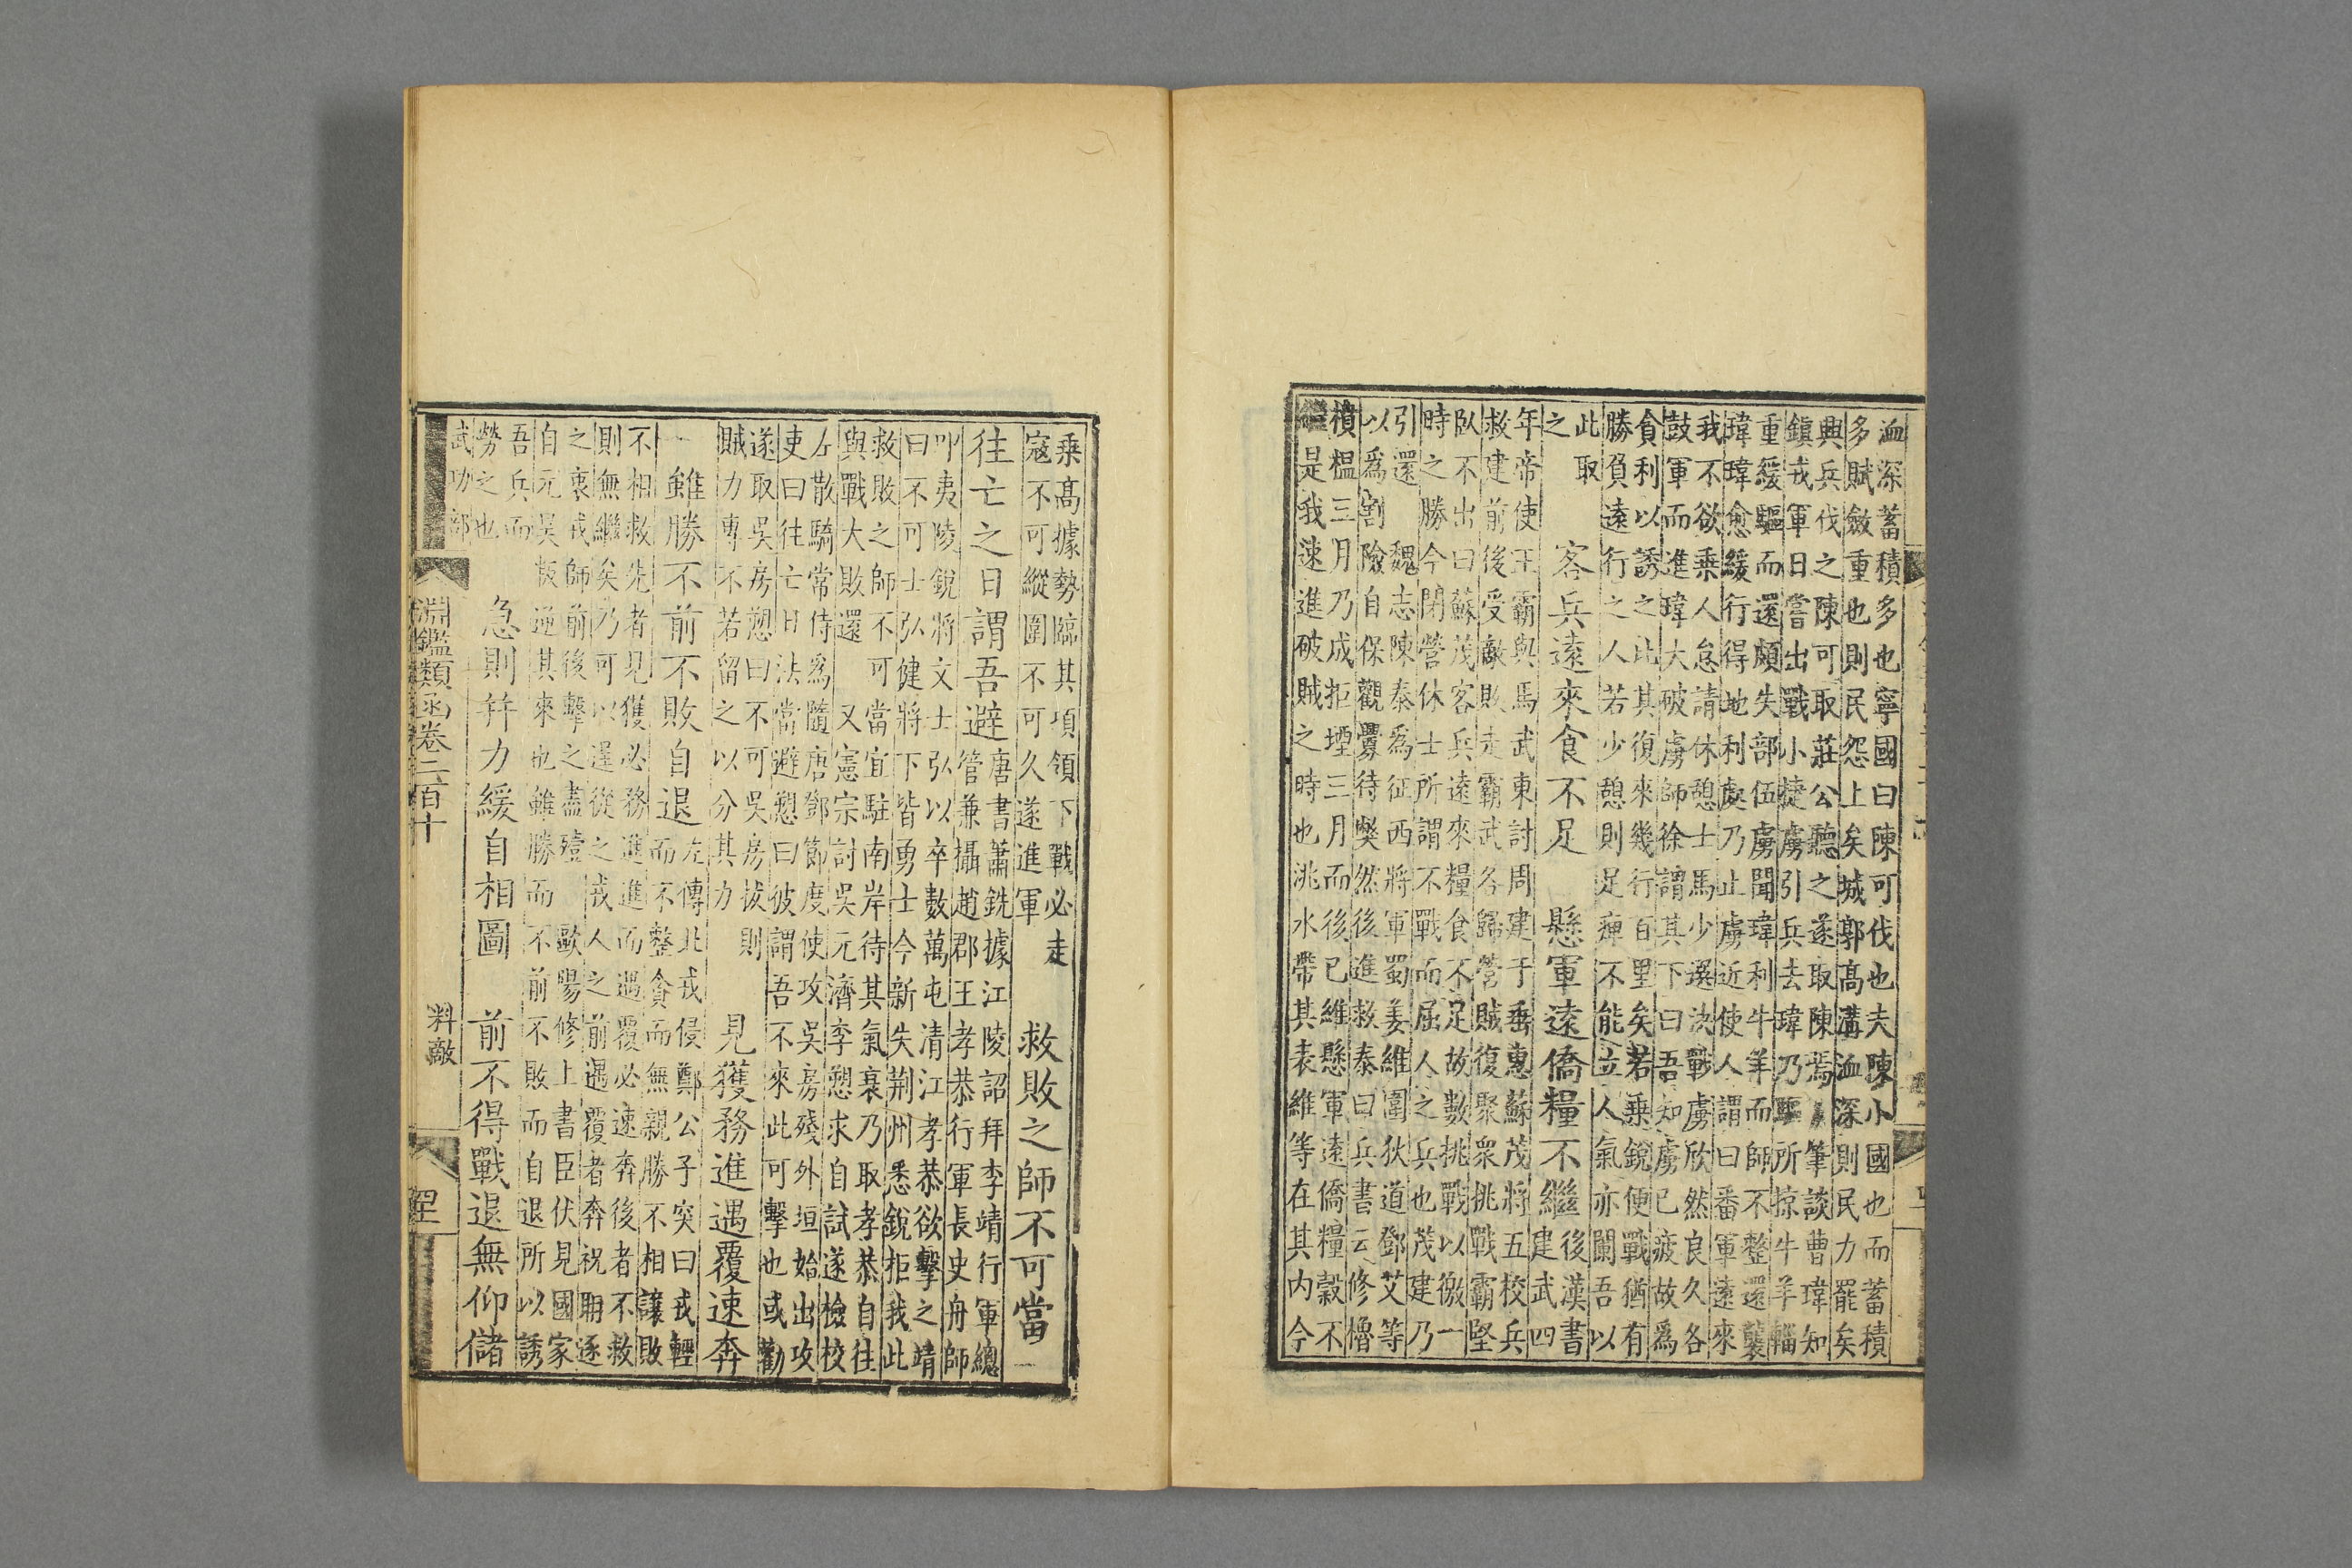 洫深蓄積多也寧國曰陳可伐也夫陳小國也而蓄積
多賦斂重也則民怨上矣城郭高溝洫深則民力罷矣
興兵伐之陳可取莊公聽之遂取陳焉 筆談曹瑋知
鎮戎軍日嘗出戰小捷虜引兵去瑋乃驅所掠牛羊輜
重緩驅而還頗失部伍虜聞瑋利牛羊而師不整還襲
瑋瑋愈緩行得地利處乃止虜近使人謂曰番軍遠來
我不欲乘人怠請休憩士馬少選決戰虜欣然良久各
鼓軍而進瑋大破虜師徐謂其下曰吾知虜已疲故爲
貪利以誘之此其復來幾行百里矣若乘銳便戰猶有
勝負遠行之人若少憩則足痺不能立人氣亦闌吾以
此取
之
客兵遠來食不足 懸軍遠僑糧不繼
後漢書
建武四
年帝使王霸與馬武東討周建于垂惠蘇茂將五校兵
救建前後受敵敗走霸武各歸營賊復聚衆挑戰霸堅
臥不出曰蘇茂客兵遠來糧食不足故數挑戰以徼一
時之勝今閉營休士所謂不戰而屈人之兵也茂建乃
引還 魏志陳泰爲征西將軍蜀姜維圍狄道鄧艾等
以爲割險自保觀釁待獘然後進救泰曰兵書云修櫓
樻榲三月乃成拒堙三月而後已維懸軍遠僑糧穀不
繼是我速進破賊之時也洮水帶其表維等在其内今
乗高據勢臨其項領下戰必走
寇不可縱圍不可久遂進軍
救敗之師不可當 一
往亡之日謂吾避
唐書蕭銑據江陵詔拜李靖行軍總
管兼攝趙郡王孝恭行軍長史舟師
叩夷陵銳將文士弘以卒數萬屯清江孝恭欲擊之靖
曰不可士弘健將下皆勇士今新失荆州悉銳拒我此
救敗之師不可當宜駐南岸待其氣衰乃取孝恭自往
與戰大敗還 又憲宗討吳元濟李愬求自試遂檢校
左散騎常侍爲隨唐鄧節度使攻吳房殘外垣始出攻
吏曰往亡日法當避愬曰彼謂吾不來此可擊也或勸
遂取吳房愬曰不可吳房拔則
賊力專不若留之以分其力
見獲務進遇覆速奔
一 雖勝不前不敗自退
左傳北戎侵鄭公子突曰戎輕
而不整貪而無親勝不相讓敗
不相救先者見獲必務進進而遇覆必速奔後者不救
則無繼矣乃可以逞從之戎人之前遇覆者奔祝聃逐
之衷戎師前後擊之盡殪 歐陽修上書臣伏見國家
自元昊叛逆其來也雖勝而不前不敗而自退所以誘
吾兵而
勞之也
急則幷力緩自相圖 前不得戰退無仰儲
武功部
淵鑑類函卷二百十 料敵